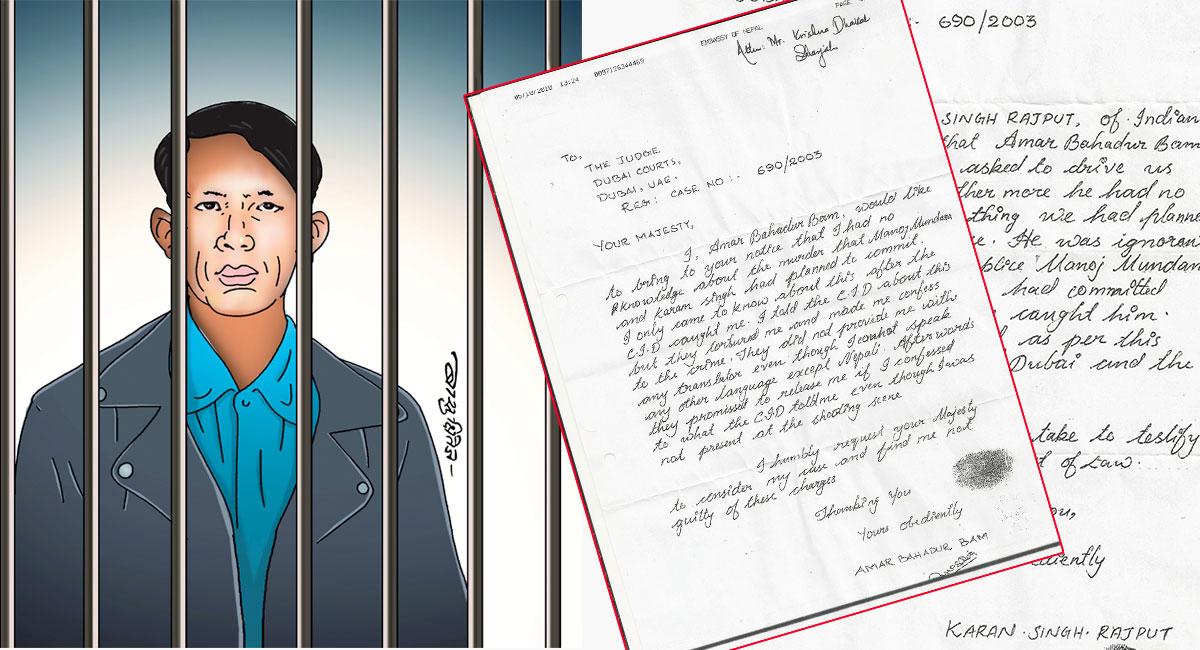 EMBASSY OF NEPAL
PAGE
Attn: Mr. Krishna Dhakal
05/10/2010 13:24 0097126344469
TO,
THE JUDGE
DUBAI COURTS,
DUBAI, UAE.
REG: CASE NO :- 690/2003
YOUR MAJESTY,
I, Amar Bahadur Bam, would like
to bring to your notice that I had no
knowledge about the murder that Manoj Mundam
and Karan Singh had planned to commit.
I only came to know about this after the
C.I.D caught me. I told the C.I.D about this
but they tortured me and made me confess
to the crime. They did not provide me with
any translator even though I cannot speak
any other language except Nepali. Afterwords
they promised to release me if I confessed
to what the CID told me even though I was
not present at the shooting scene
I humbly request your Majesty
to consider my case and find me not
guilty of these charges
Thanking You
Yours obediently
AMAR BAHADUR BAM
:- 690/2003
SINGH RAJPUT, of Indian
that Amar Bahadur Bam
asked to drive us
ther more he had no
thing we had planned
e. He was ignoran
plice Manoj Mundam
had committed
caught him.
as per this
Dubai and the
take to testify
of Law.
ou,
diently
KARAN SINGH RAJPUT